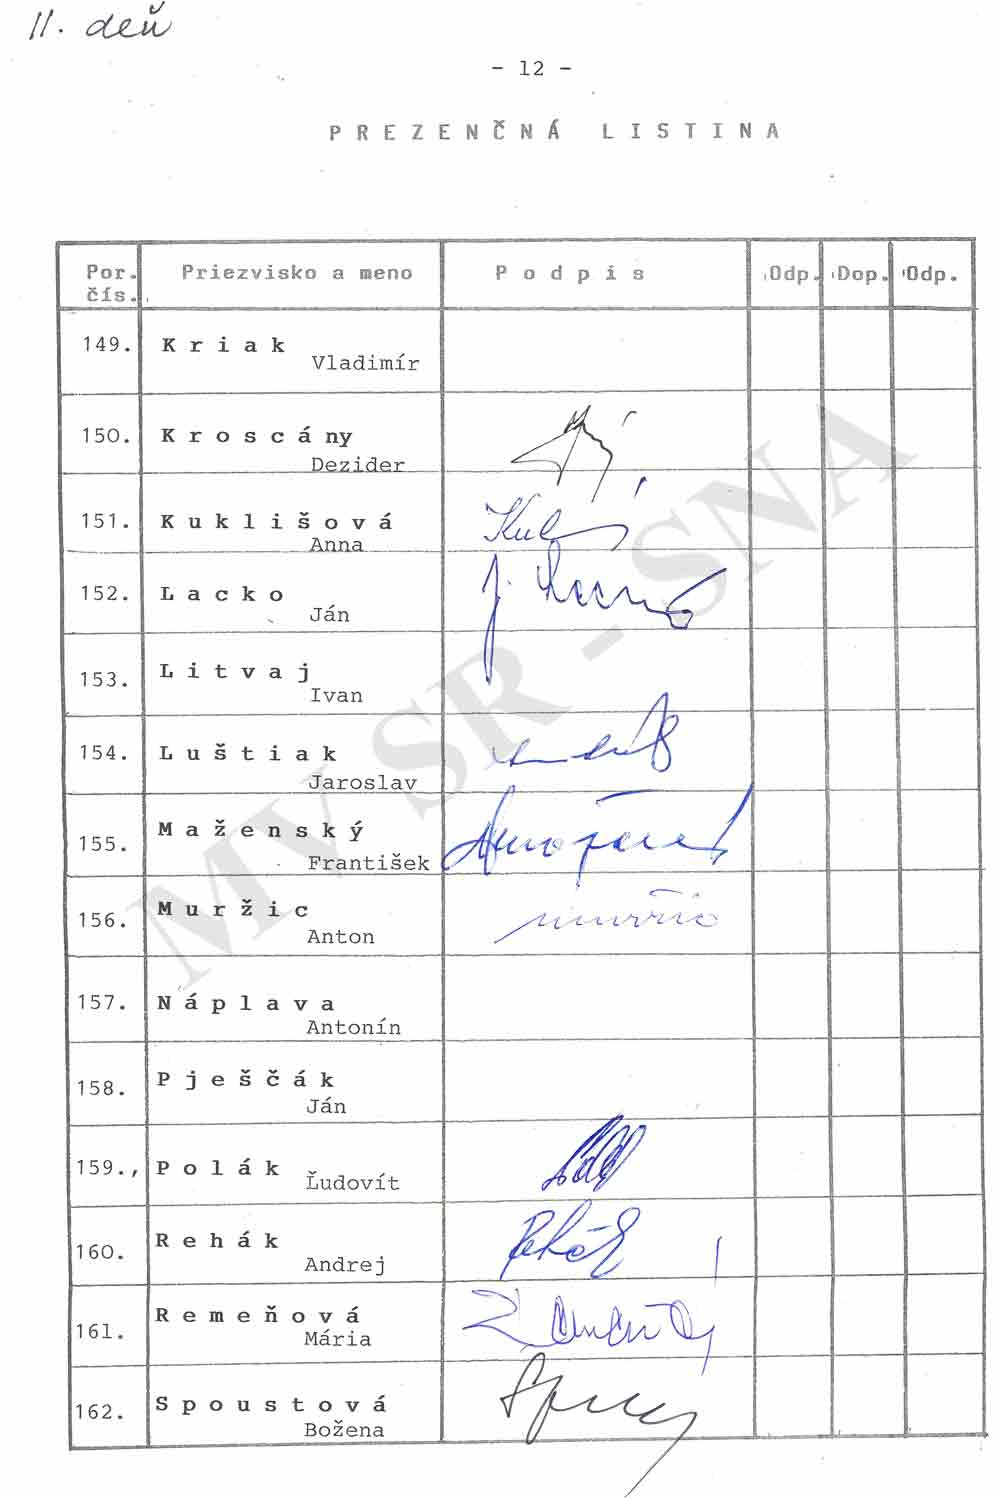 11. deň
- 12 -
PREZENČNÁ LISTINA
Por. čís. Priezvisko a meno Podpis Odp. Dop. Odp.
149. Kriak
Vladimír
150. Kroscány
Dezider
151. Kuklišová
Anna
152. Lacko
Ján
153. Litvaj
Ivan
154. Luštiak
Jaroslav
155. Maženský
František
156. Muržic
Anton
157. Náplava
Antonín
158. Pješčák
Ján
159., Polák
Ľudovít
160. Rehák
Andrej
161. Remeňová
Mária
162. Spoustová
Božena
MV SR - SNA